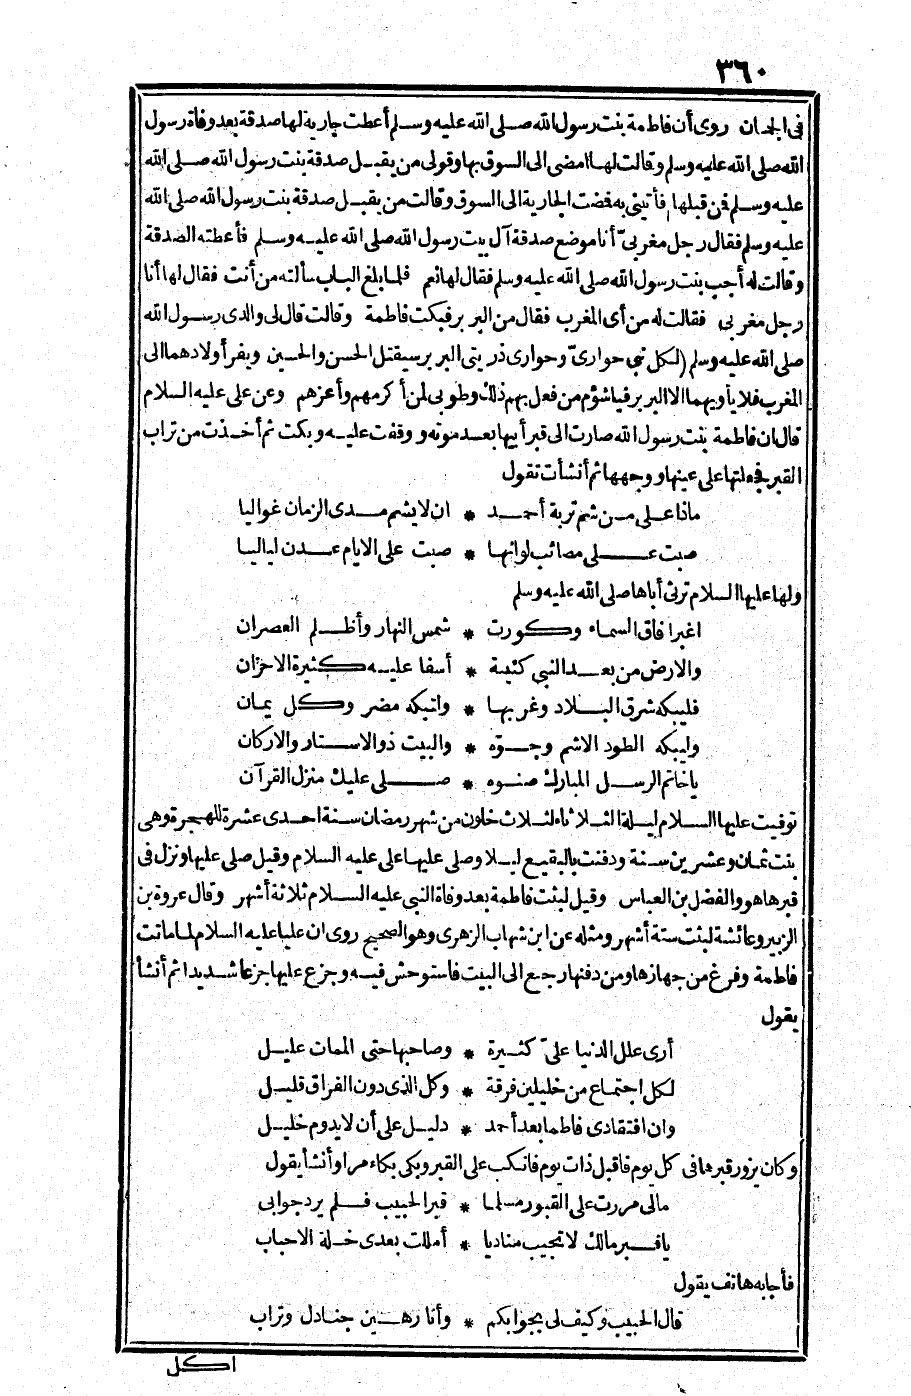 ٣٦٠
فى الجنان روى أن فاطمة بنت رسول الله صلى الله عليه وسلم أعطت جارية لها صدقة بعد وفاة رسول
الله صلى الله عليه وسلم وقالت لها امضى الى السوق بها وقولى من يقبل صدقة بنت رسول الله صلى الله
عليه وسلم فمن قبلها فأتينى به فضت الجارية الى السوق وقالت من يقبل صدقة بنت رسول الله صلى الله
عليه وسلم فقال رجل مغربىّ أنا موضع صدقة آل بيت رسول الله صلى الله عليه وسلم فأعطته الصدقة
وقالت له أجب بنت رسول الله صلى الله عليه وسلم فقال لها نعم فلما بلغ الباب سألته من أنت فقال لها أنا
رجل مغربى فقالت له من أى المغرب فقال من البربر فبكت فاطمة وقالت قال لى والدى رسول الله
صلى الله عليه وسلم (لكل نبى حوارىّ وحوارى ذريتى البربر سيقتل الحسن والحسين ويفر أولادهما الى
المغرب فلا يأويهما الا البربر فيا شؤم من فعل بهم ذلك وطوبى لمن أكرمهم وأعزهم وعن على عليه السلام
قال ان فاطمة بنت رسول الله صارت الى قبر أبيها بعد موته ووقفت عليه وبكت ثم أخذت من تراب
القبر فجعلتها على عينها ووجهها ثم أنشأت تقول
ماذا على من شم تربة أحمد * ان لا يشم مدى الزمان غواليا
صبت على مصائب لوانها * صبت على الايام عدن لياليا
ولها عليها السلام ترثى أباها صلى الله عليه وسلم
اغبر افاق السماء وكورت * شمس النهار وأظلم العصران
والارض من بعد النبى كئيبة * أسفا عليه كثيرة الاحزان
فليبكه شرق البلاد وغربها * واتبكه مضر وكل يمان
وليبكه الطود الاشم وجوّه * والبيت ذو الاستار والاركان
ياخاتم الرسل المبارك صنوه * صلى عليك منزل القرآن
توفيت عليها السلام ليلة الثلاثاء لثلاث خلون من شهر رمضان سنة احدى عشرة للهجرة وهى
بنت ثمان وعشرين سنة ودفنت بالبقيع ليلا وصلى عليها على عليه السلام وقيل صلى عليها ونزل فى
قبرها هو والفضل بن العباس وقيل لبثت فاطمة بعد وفاة النبى عليه السلام ثلاثة أشهر وقال عروة بن
الزبير وعائشة لبثت ستة أشهر ومثله عن ابن شهاب الزهرى وهو الصحيح روى ان عليا عليه السلام لما ماتت
فاطمة وفرغ من جهازها ومن دفنها رجع الى البيت فاستوحش فيه وجزع عليها جزعا شديدا ثم أنشأ
يقول
أرى علل الدنيا علىّ كثيرة * وصاحبها حتى الممات عليل
لكل اجتماع من خليلين فرقة * وكل الذى دون الفراق قليل
وان افتقادى فاطما بعد أحمد * دليل على أن لا يدوم خليل
وكان يزور قبرها فى كل يوم فاقبل ذات يوم فانكب على القبر وبكى بكاء مرا وأنشأ يقول
مالى مررت على القبور مسلما * قبر الحبيب فلم يرد جوابى
ياقبر مالك لا تجيب مناديا * أمللت بعدى خلة الاحباب
فأجابه هاتف يقول
قال الحبيب وكيف لى بجوابكم * وأنا رهين جنادل وتراب
اكل